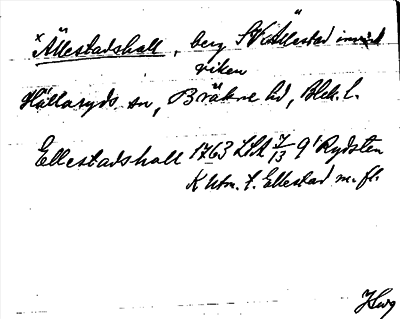 x Ällestadshall, berg SV Ällestad invid
viken
Hällaryds sn, Bräkne hd, Blek. l.
Ellestadshall 1763 LSA 7/13 9¹ Rydsten
K utn. t. Ellestad m. fl.